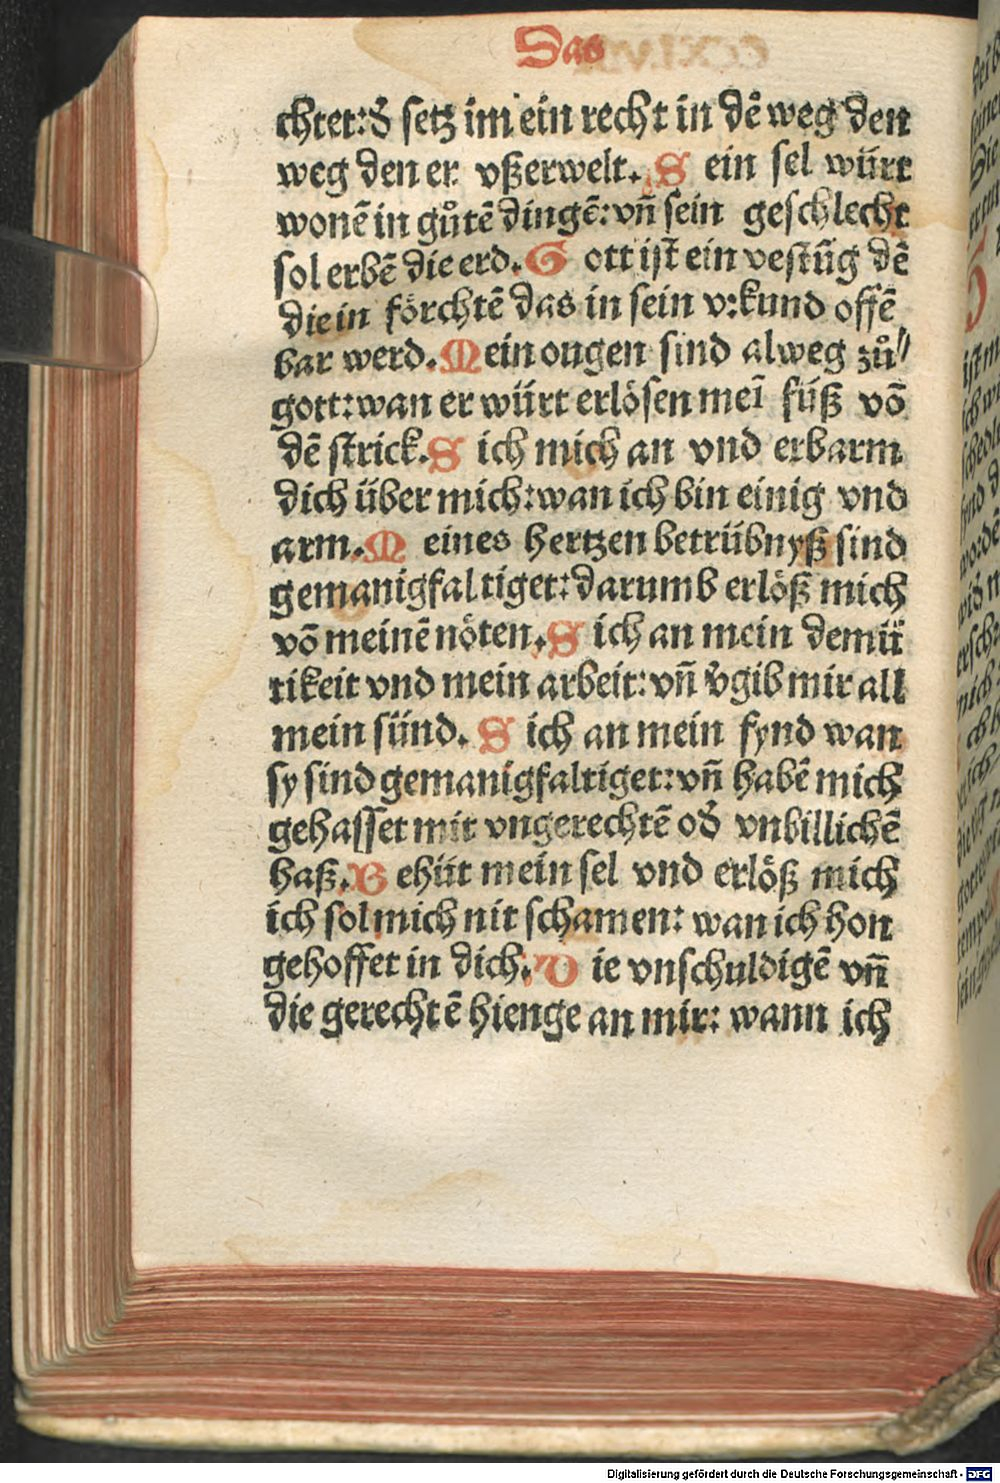 Das
chtet: d̕ setz im ein recht in dē weg den
weg den er vßerwelt. S ein sel würt
wonē in gůtē dingē: vñ sein geschlecht
sol erbē die erd. G ott ist ein vestūg dē
die in förchtē das in sein vrkund offē
bar werd. M ein ougen sind alweg zů⸗
gott: wan er würt erlösen meī füß vō
dē strick. S ich mich an vnd erbarm
dich über mich: wan ich bin einig vnd
arm. M eines hertzen betrübnyß sind
gemanigfaltiget: darumb erlöß mich
vō meinē nöten. S ich an mein demü
tikeit vnd mein arbeit: vñ v̕gib mir all
mein sünd. S ich an mein fynd wan
sy sind gemanigfaltiget: vñ habē mich
gehasset mit vngerechtē od̕ vnbillichē
haß. B ehüt mein sel vnd erlöß mich
ich sol mich nit schamen: wan ich hon
gehoffet in dich. D ie vnschuldigē vñ
die gerechtē hienge an mir: wann ich
Digitalisierung gefördert durch die Deutsche Forschungsgemeinschaft - DFG